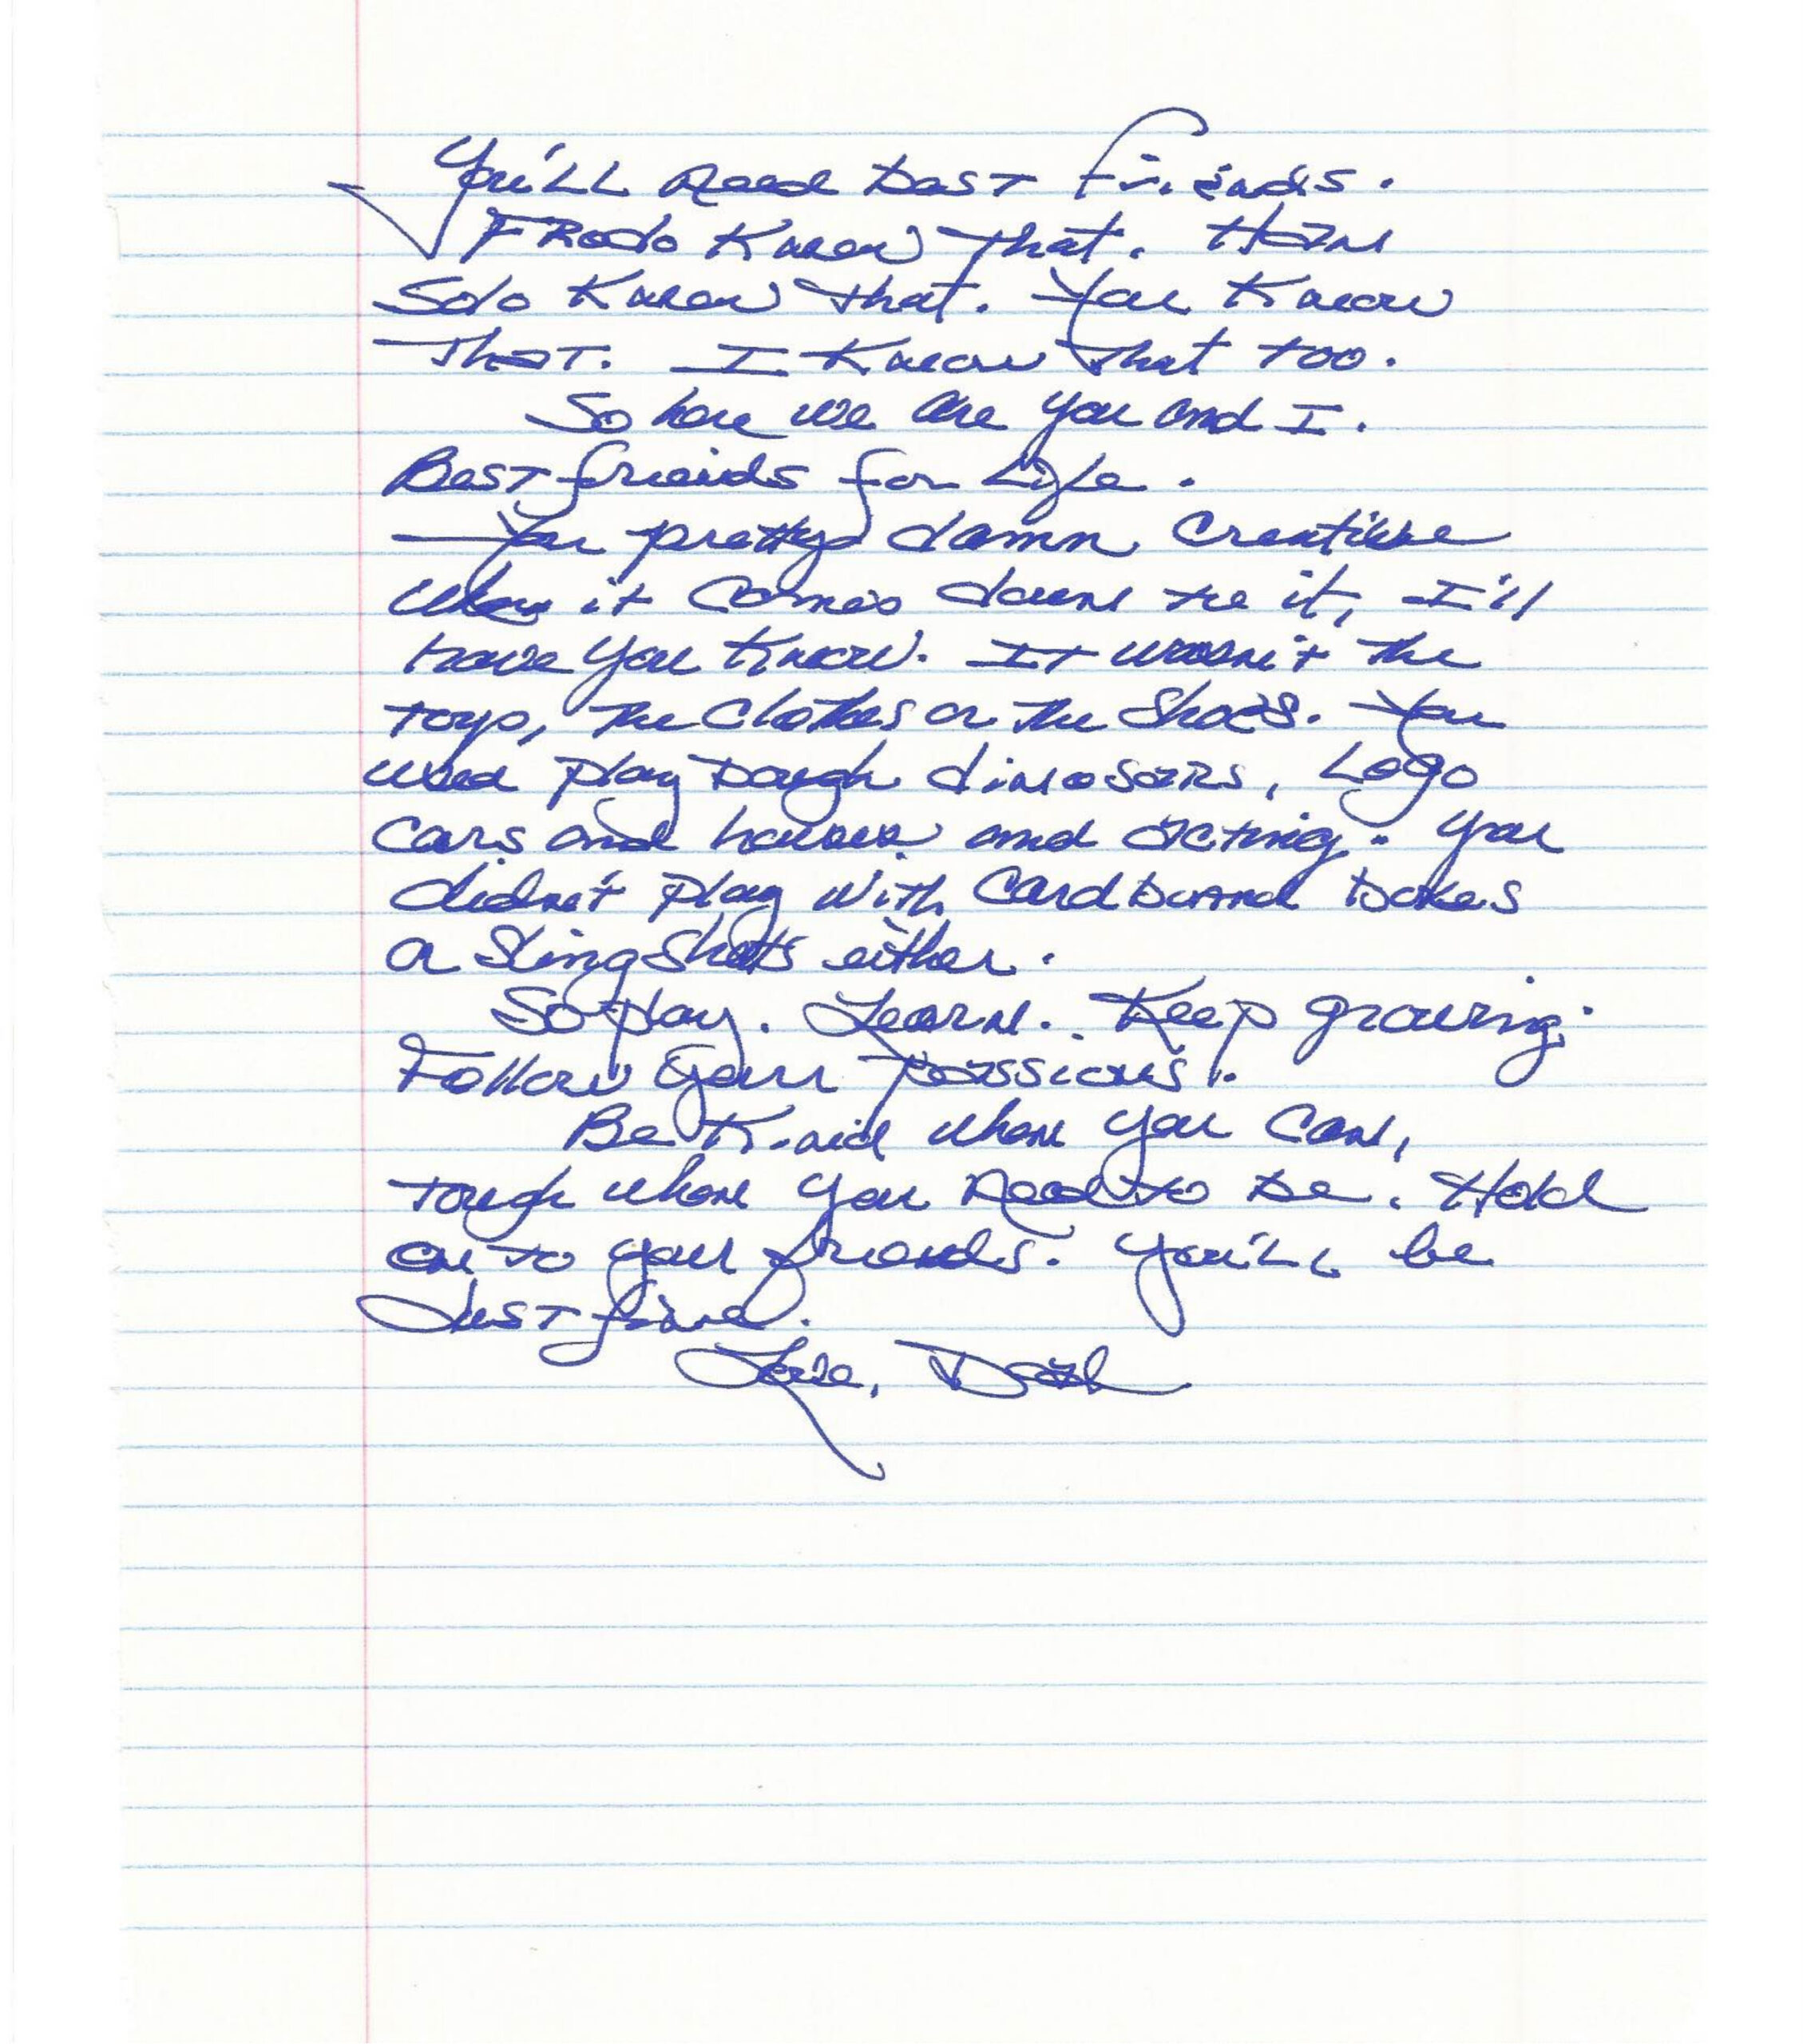 You'LL need best friends.
FRodo Knew that. Han
Solo Knew that. You Know
That. I Know that too.
So here we are you and I.
Best friends for Life.
You pretty damn Creative
when it comes down to it, I'll
have you Know. It wasn't the
toys, the Clothes or the Shoes. You
used Play Dough dinosars, Lego
Cars and houses and acting. You
didn't play with Cardboard boxes
or Slingshots either.
So play. Learn. Keep growing.
Follow your passions.
Be Kind when you Can,
Tough when you need to be. Hold
on to your friends. You'LL be
Just fine.
Love, Dad